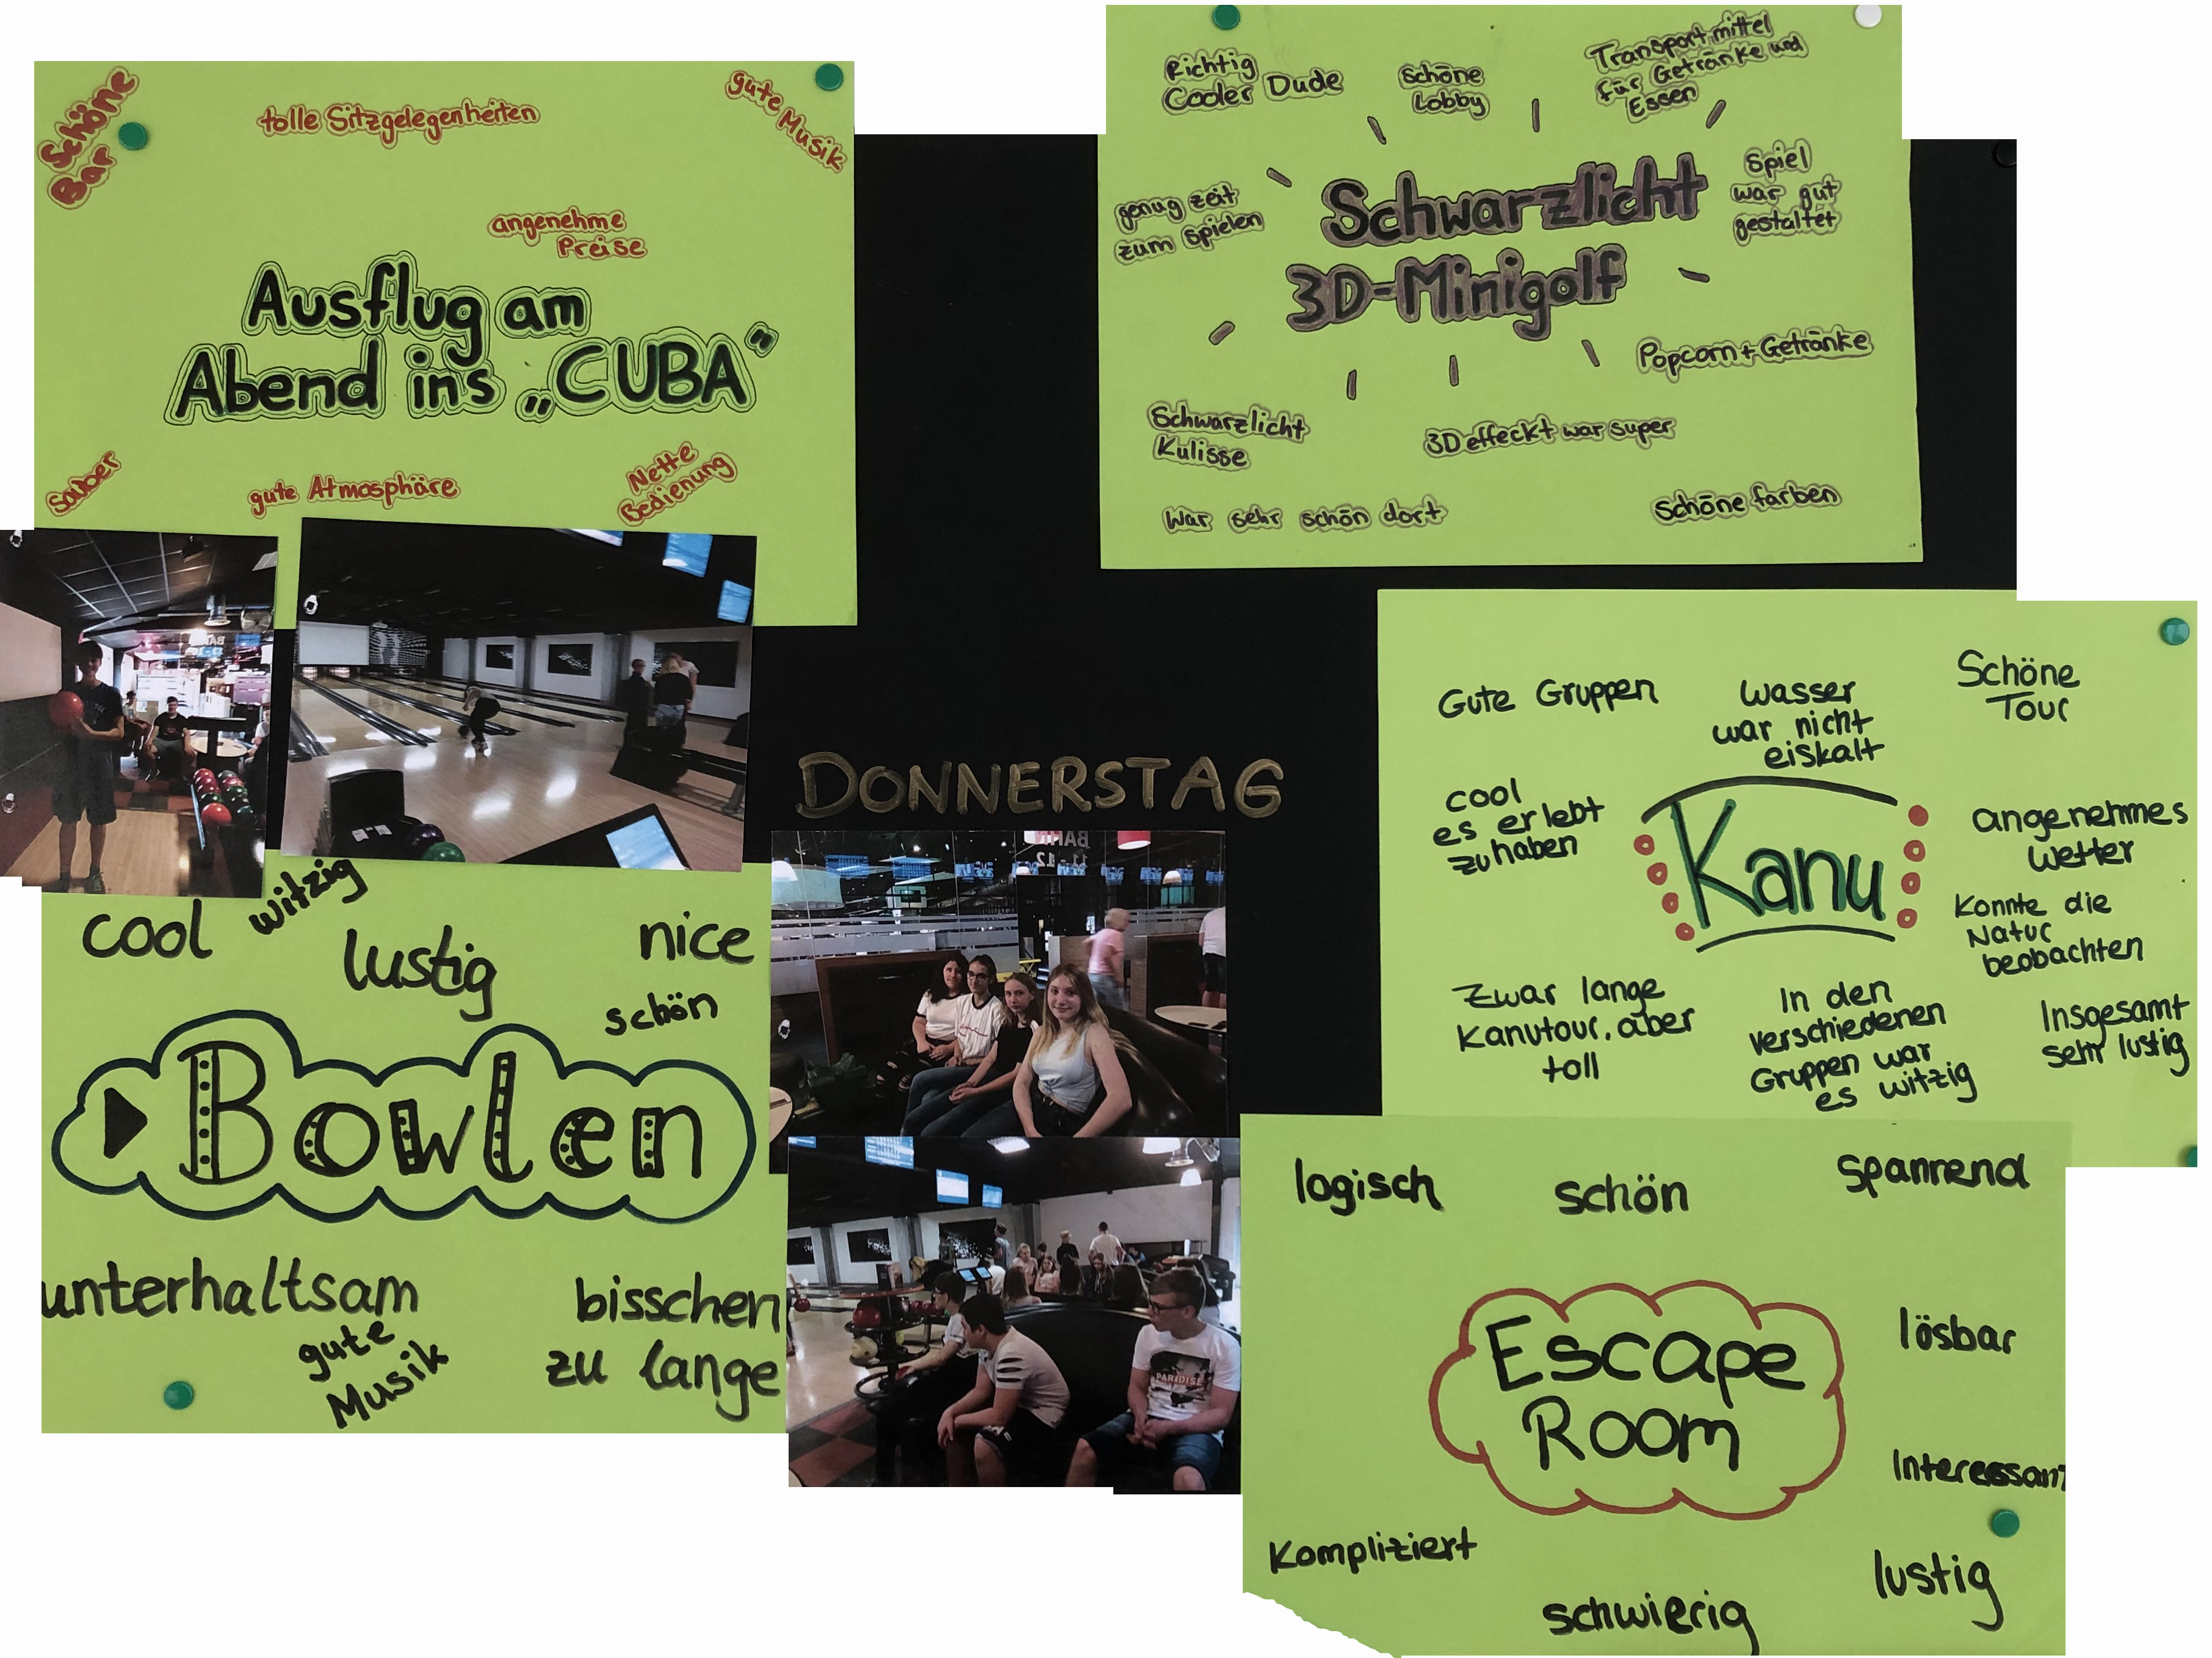 Schöne
Bar
tolle Sitzgelegenheiten
gute Musik
angenehme
Preise
Ausflug am
Abend ins „CUBA“
sauber
gute Atmosphäre
Nette
Bedienung
Richtig
Cooler Dude
schöne
Lobby
Transportmittel
für Getränke und
Essen
genug zeit
zum spielen
Schwarzlicht
3D-Minigolf
Spiel
war gut
gestaltet
Popcorn + Getränke
Schwarzlicht
Kulisse
3D effeckt war super
War sehr schön dort
Schöne farben
DONNERSTAG
BAHN
11-12
Gute Gruppen
Wasser
war nicht
eiskalt
Schöne
Tour
cool
es erlebt
zu haben
Kanu
angenehmes
Wetter
Konnte die
Natur
beobachten
Zwar lange
Kanutour, aber
toll
In den
verschiedenen
Gruppen war
es witzig
Insgesamt
sehr lustig
cool
witzig
lustig
nice
schön
Bowlen
unterhaltsam
gute
Musik
bisschen
zu lange
PARADISE
logisch
schön
spannend
Escape
Room
lösbar
Interessant
Kompliziert
schwierig
lustig